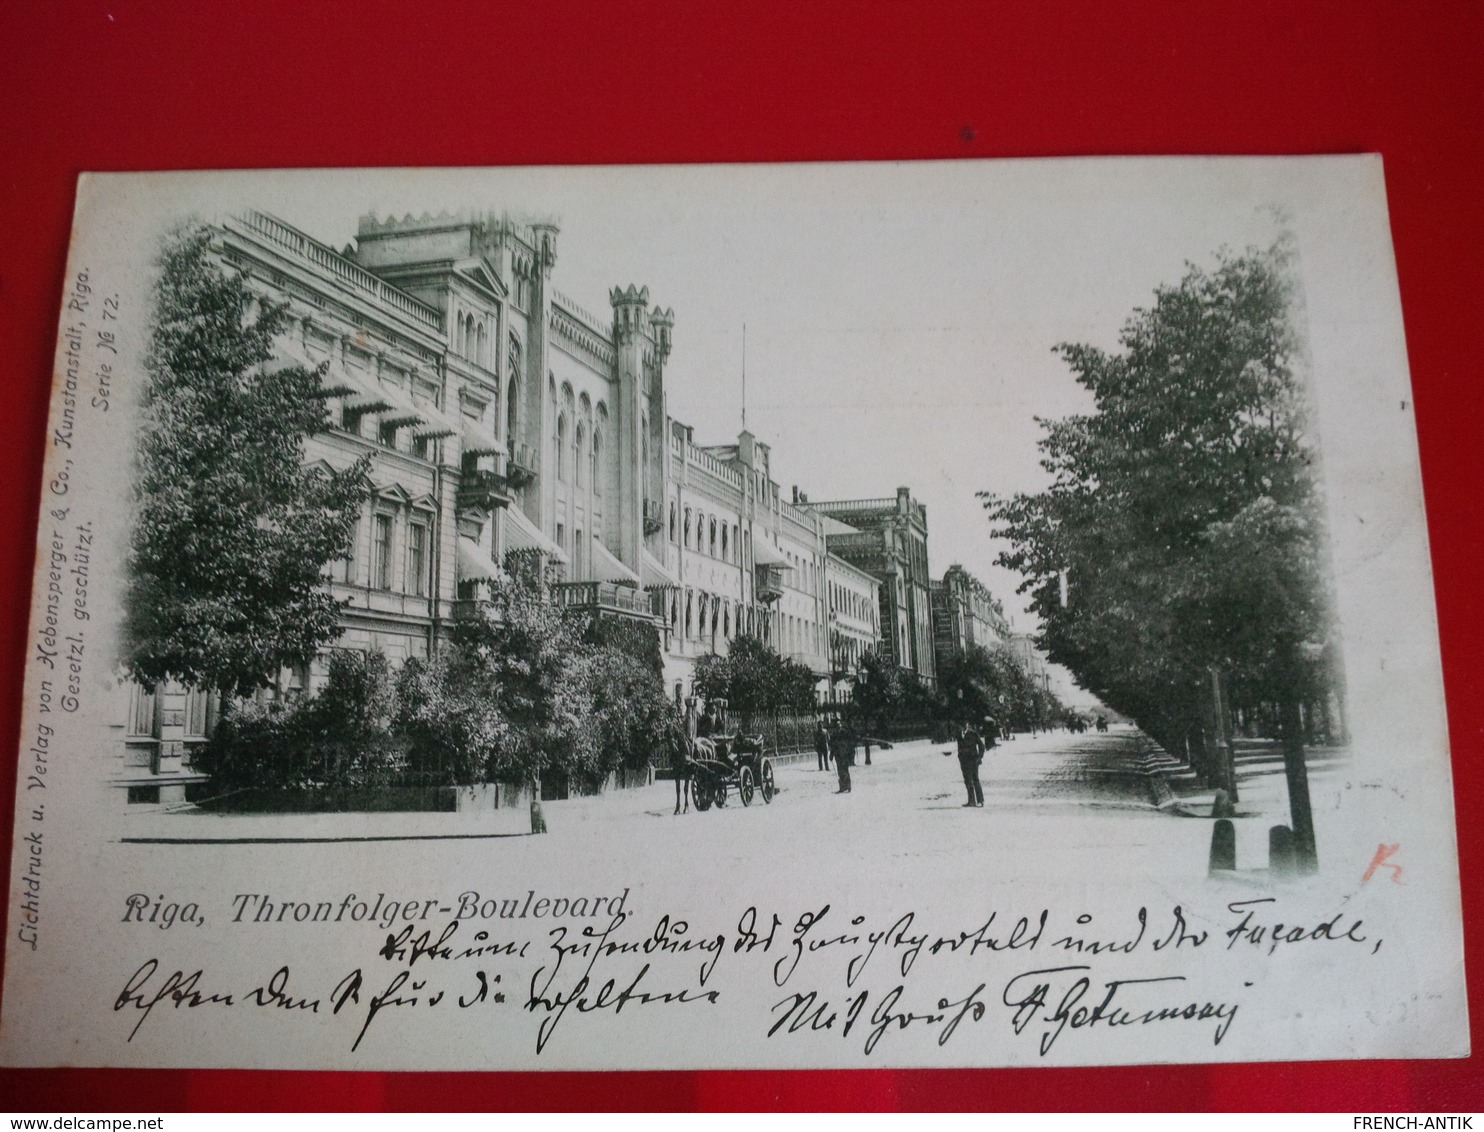 Lichtdruck u. Verlag von Hebensperger & Co., Kunstanstalt, Riga.
Gesetzl. geschützt.
Serie № 72.
Riga, Thronfolger-Boulevard.
Bitte um Zusendung des Hauptportals und der Façade,
besten Dank für die erhaltene
Mit Gruß
delcampe.net
FRENCH-ANTIK